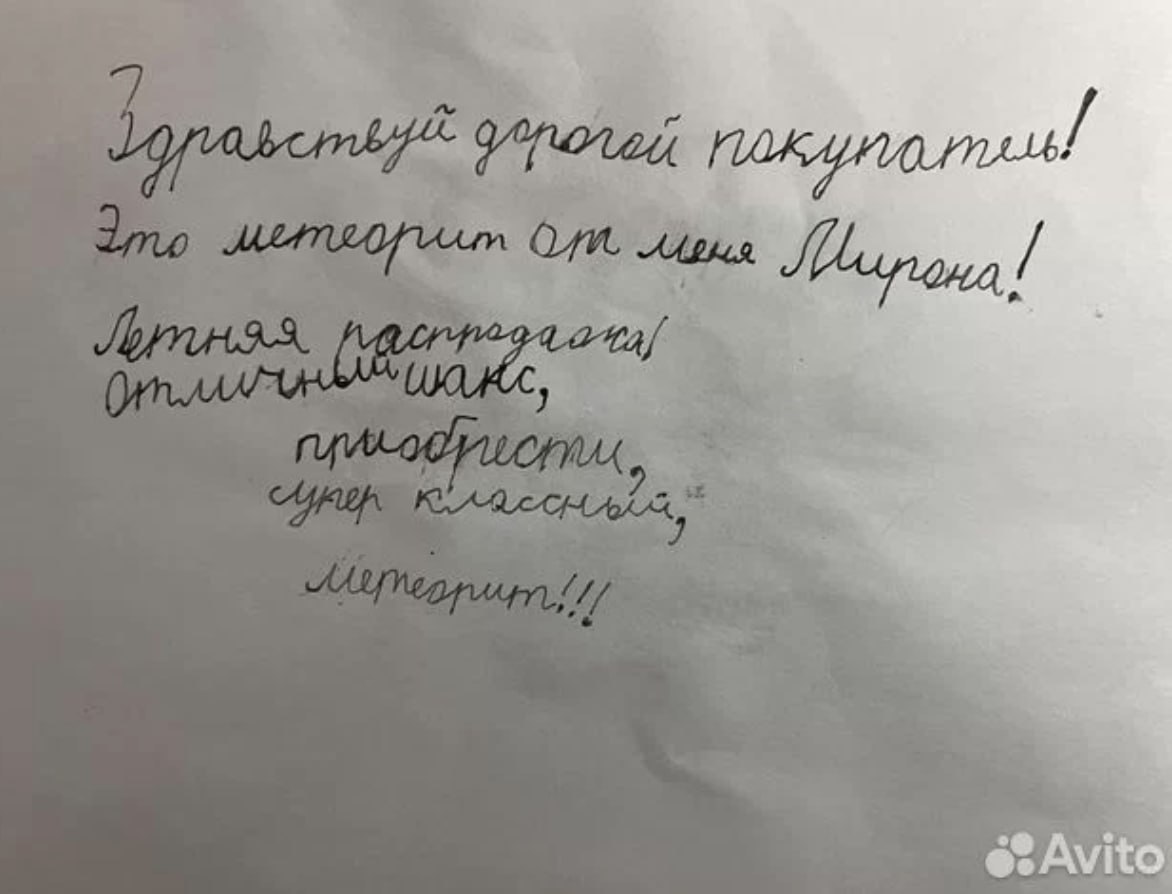 Здравствуй дорогой покупатель!
Это метеорит от меня Мирона!
Летняя распродажа!
Отличный шанс,
приобрести,
супер классный,
метеорит!!!
Avito